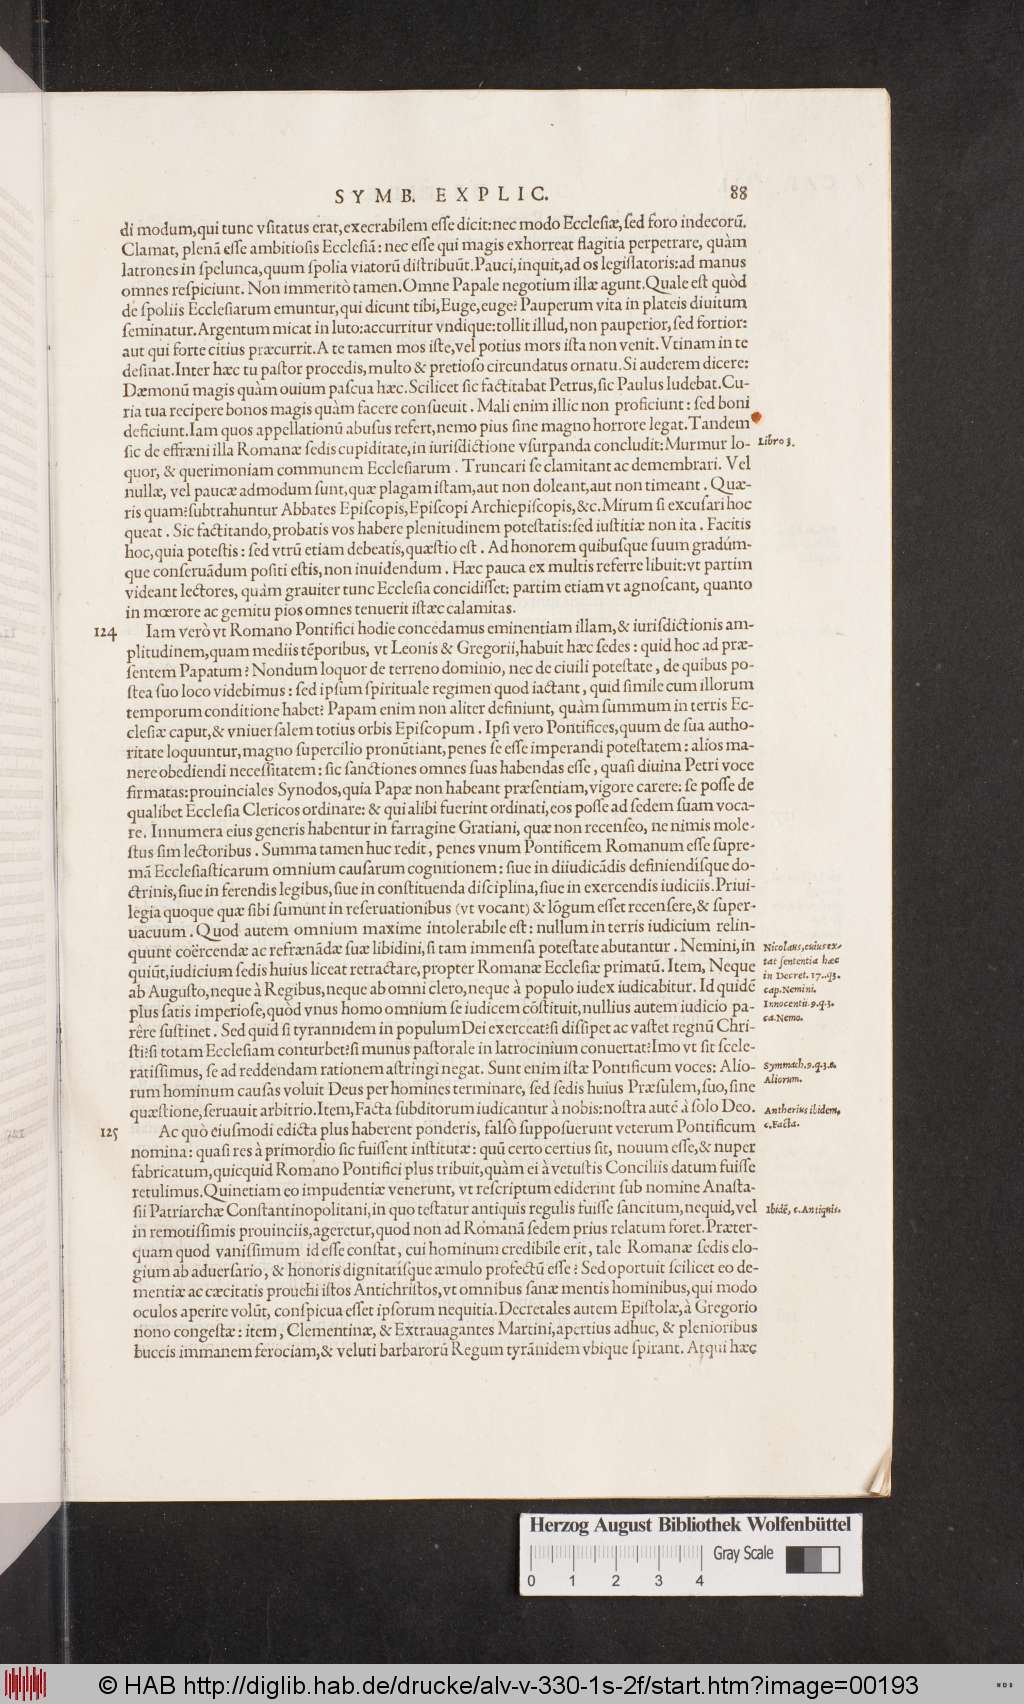 SYMB. EXPLIC. 88
di modum,qui tunc vſitatus erat,execrabilem eſſe dicit:nec modo Eccleſiæ,ſed foro indecorū.
Clamat, plenā eſſe ambitioſis Eccleſiā: nec eſſe qui magis exhorreat flagitia perpetrare, quàm
latrones in ſpelunca,quum ſpolia viatorū diſtribuūt.Pauci,inquit,ad os legiſlatoris:ad manus
omnes reſpiciunt. Non immeritò tamen.Omne Papale negotium illæ agunt.Quale eſt quòd
de ſpoliis Eccleſiarum emuntur,qui dicunt tibi,Euge,euge? Pauperum vita in plateis diuitum
ſeminatur.Argentum micat in luto:accurritur vndique:tollit illud,non pauperior,ſed fortior:
aut qui forte citius præcurrit.A te tamen mos iſte,vel potius mors iſta non venit.Vtinam in te
deſinat.Inter hæc tu paſtor procedis,multo & pretioſo circundatus ornatu.Si auderem dicere:
Dæmonū magis quàm ouium paſcua hæc.Scilicet ſic factitabat Petrus,ſic Paulus ludebat.Cu-
ria tua recipere bonos magis quàm facere conſueuit. Mali enim illic non proficiunt: ſed boni
deficiunt.Iam quos appellationū abuſus refert,nemo pius ſine magno horrore legat.Tandem
ſic de effræni illa Romanæ ſedis cupiditate,in iuriſdictione vſurpanda concludit:Murmur lo- Libro 3.
quor, & querimoniam communem Eccleſiarum. Truncari ſe clamitant ac demembrari. Vel
nullæ, vel paucæ admodum ſunt,quæ plagam iſtam,aut non doleant,aut non timeant. Quæ-
ris quam?ſubtrahuntur Abbates Epiſcopis,Epiſcopi Archiepiſcopis,&c.Mirum ſi excuſari hoc
queat. Sic factitando,probatis vos habere plenitudinem poteſtatis:ſed iuſtitiæ non ita. Facitis
hoc,quia poteſtis: ſed vtrū etiam debeatis,quæſtio eſt. Ad honorem quibuſque ſuum gradúm-
que conſeruādum poſiti eſtis,non inuidendum. Hæc pauca ex multis referre libuit:vt partim
videant lectores, quàm grauiter tunc Eccleſia concidiſſet: partim etiam vt agnoſcant, quanto
in mœrore ac gemitu pios omnes tenuerit iſtæc calamitas.
124 Iam verò vt Romano Pontifici hodie concedamus eminentiam illam,& iuriſdictionis am-
plitudinem,quam mediis tēporibus, vt Leonis & Gregorii,habuit hæc ſedes: quid hoc ad præ-
ſentem Papatum? Nondum loquor de terreno dominio, nec de ciuili poteſtate, de quibus po-
ſtea ſuo loco videbimus: ſed ipſum ſpirituale regimen quod iactant, quid ſimile cum illorum
temporum conditione habet? Papam enim non aliter definiunt, quàm ſummum in terris Ec-
cleſiæ caput,& vniuerſalem totius orbis Epiſcopum. Ipſi vero Pontifices,quum de ſua autho-
ritate loquuntur,magno ſupercilio pronūtiant,penes ſe eſſe imperandi poteſtatem: alios ma-
nere obediendi neceſſitatem: ſic ſanctiones omnes ſuas habendas eſſe, quaſi diuina Petri voce
firmatas:prouinciales Synodos,quia Papæ non habeant præſentiam,vigore carere: ſe poſſe de
qualibet Eccleſia Clericos ordinare: & qui alibi fuerint ordinati,eos poſſe ad ſedem ſuam voca-
re. Innumera eius generis habentur in farragine Gratiani, quæ non recenſeo, ne nimis mole-
ſtus ſim lectoribus. Summa tamen huc redit, penes vnum Pontificem Romanum eſſe ſupre-
mā Eccleſiaſticarum omnium cauſarum cognitionem: ſiue in diiudicādis definiendiſque do-
ctrinis,ſiue in ferendis legibus,ſiue in conſtituenda diſciplina,ſiue in exercendis iudiciis.Priui-
legia quoque quæ ſibi ſumunt in reſeruationibus (vt vocant) & lōgum eſſet recenſere,& ſuper-
uacuum. Quod autem omnium maxime intolerabile eſt: nullum in terris iudicium relin-
quunt coërcendæ ac refrænādæ ſuæ libidini,ſi tam immenſa poteſtate abutantur. Nemini,in Nicolaus,cuius ex-
quiūt,iudicium ſedis huius liceat retractare,propter Romanæ Eccleſiæ primatū. Item, Neque tat ſententia hæc
ab Auguſto,neque à Regibus,neque ab omni clero,neque à populo iudex iudicabitur. Id quidē in Decret. 17.q3.
cap.Nemini.
plus ſatis imperioſe,quòd vnus homo omnium ſe iudicem cōſtituit,nullius autem iudicio pa- Innocentii 9.q.3.
rêre ſuſtinet. Sed quid ſi tyrannidem in populum Dei exerceat?ſi diſſipet ac vaſtet regnū Chri- ca.Nemo.
ſti?ſi totam Eccleſiam conturbet?ſi munus paſtorale in latrocinium conuertat?Imo vt ſit ſcele-
ratiſſimus, ſe ad reddendam rationem aſtringi negat. Sunt enim iſtæ Pontificum voces: Alio- Symmach.9.q.3.c.
rum hominum cauſas voluit Deus per homines terminare, ſed ſedis huius Præſulem,ſuo,ſine Aliorum.
quæſtione,ſeruauit arbitrio.Item,Facta ſubditorum iudicantur à nobis:noſtra autē à ſolo Deo. Antherius ibidem,
125 Ac quò eiuſmodi edicta plus haberent ponderis, falſò ſuppoſuerunt veterum Pontificum c.Facta.
nomina: quaſi res à primordio ſic fuiſſent inſtitutæ: quū certo certius ſit, nouum eſſe,& nuper
fabricatum,quicquid Romano Pontifici plus tribuit,quàm ei à vetuſtis Conciliis datum fuiſſe
retulimus.Quinetiam eo impudentiæ venerunt, vt reſcriptum ediderint ſub nomine Anaſta-
ſii Patriarchæ Conſtantinopolitani,in quo teſtatur antiquis regulis fuiſſe ſancitum,nequid,vel Ibidē, c.Antiquis.
in remotiſſimis prouinciis,ageretur,quod non ad Romanā ſedem prius relatum foret.Præter-
quam quod vaniſſimum id eſſe conſtat, cui hominum credibile erit, tale Romanæ ſedis elo-
gium ab aduerſario, & honoris dignitatiſque æmulo profectū eſſe? Sed oportuit ſcilicet eo de-
mentiæ ac cæcitatis prouehi iſtos Antichriſtos,vt omnibus ſanæ mentis hominibus,qui modo
oculos aperire volūt, conſpicua eſſet ipſorum nequitia.Decretales autem Epiſtolæ,à Gregorio
nono congeſtæ: item, Clementinæ, & Extrauagantes Martini,apertius adhuc, & plenioribus
buccis immanem ferociam,& veluti barbarorū Regum tyrānidem vbique ſpirant. Atqui hæc
Herzog August Bibliothek Wolfenbüttel
Gray Scale
0 1 2 3 4
© HAB http://diglib.hab.de/drucke/alv-v-330-1s-2f/start.htm?image=00193